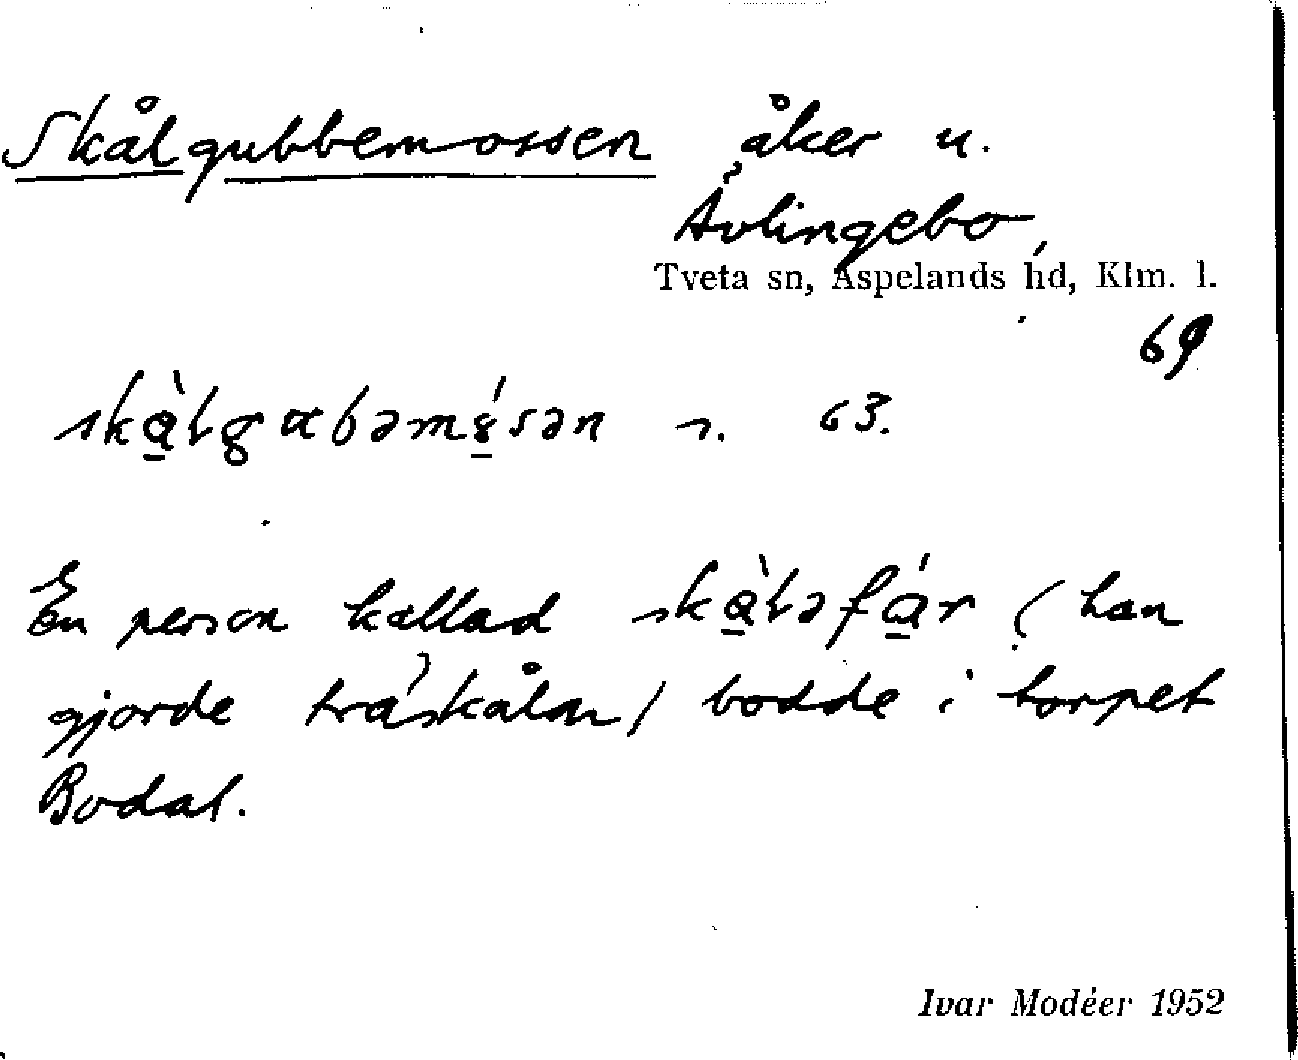 Skålgubbemossen åker u.
Åvlingebo,
Tveta sn, Aspelands hd, Klm. l.
69
63.
En person kallad (han
gjorde träskålar) bodde i torpet
Bodal.
Ivar Modéer 1952